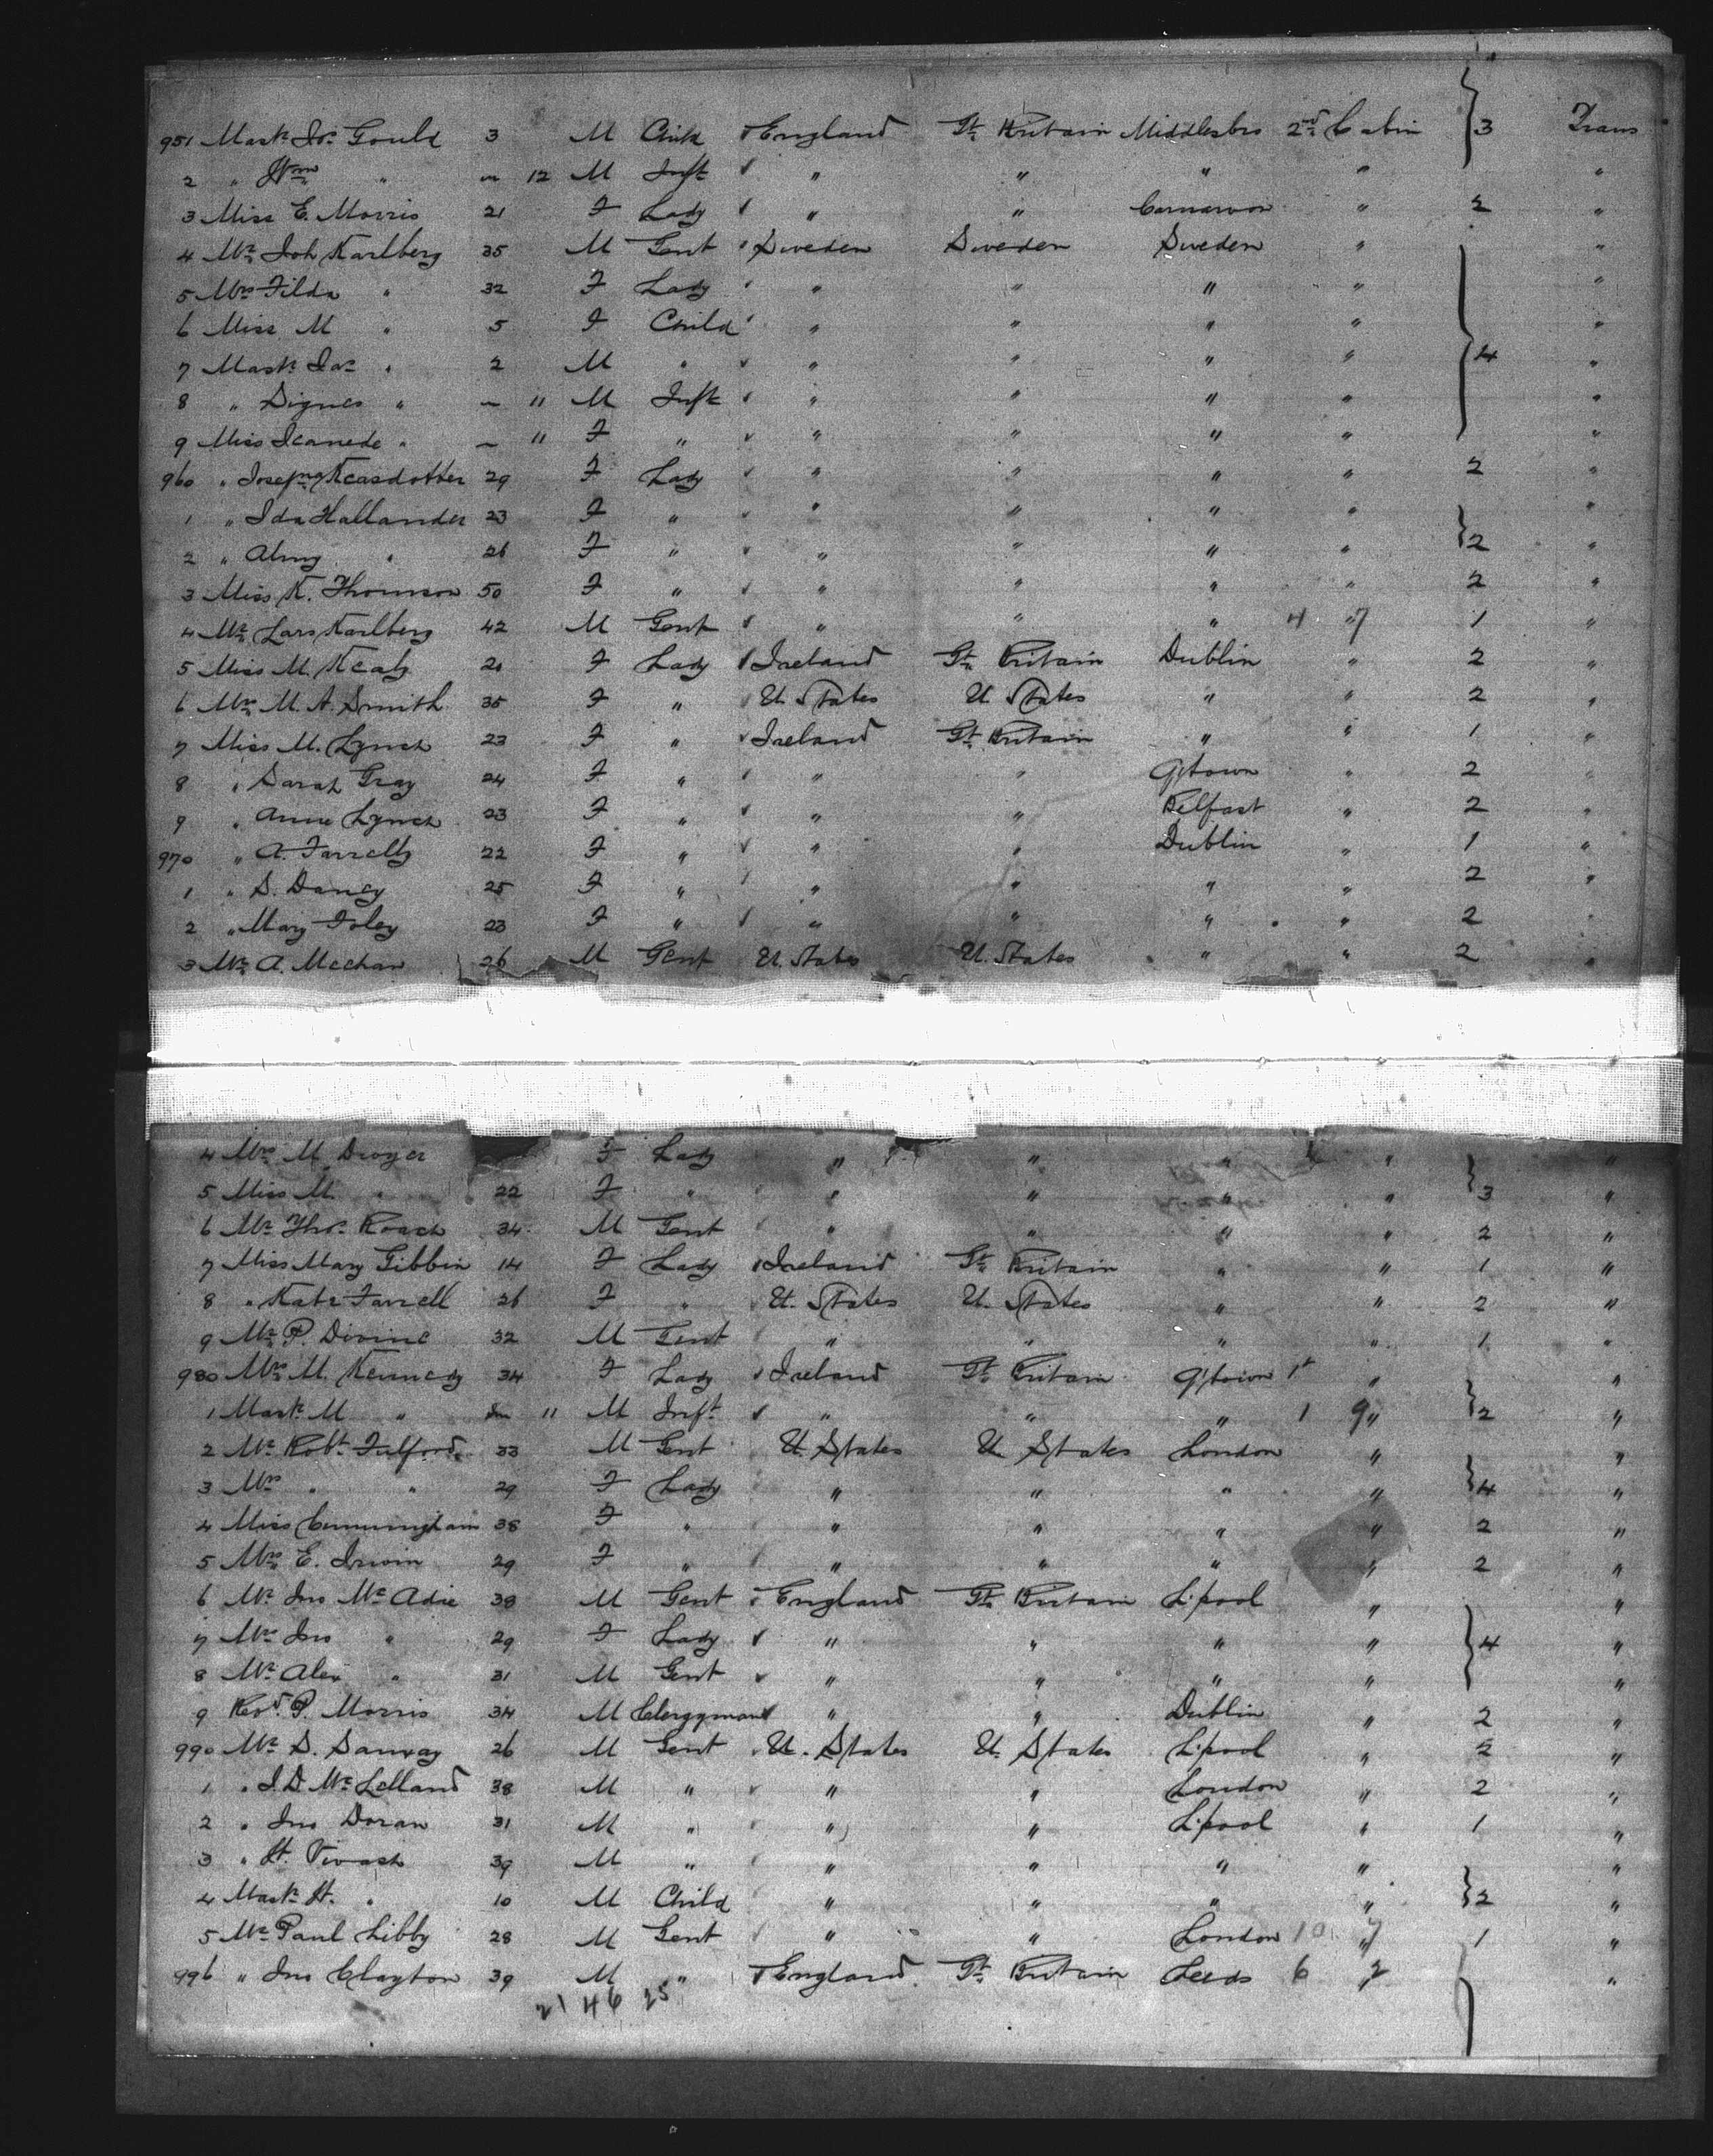 951 Mastr Jos. Gould 3 M Child England Gt Britain Middlesbro 2nd Cabin 3 Trans
2 " Wm " – 12 M Inft " " " " "
3 Miss E. Morris 21 F Lady " " Carnarvon " 2 "
4 Mr Joh Karlberg 35 M Gent Sweden Sweden Sweden " "
5 Mrs Tilda " 32 F Lady " " " " "
6 Miss M " 5 F Child " " " " "
7 Mastr " 2 M " " " " " 4 "
8 " Signes " – 11 M Inft " " " " "
9 Miss " – 11 F " " " " " "
960 " 29 F Lady " " " " 2 "
1 " Ida Hallander 23 F " " " " " "
2 " " 26 F " " " " " 2 "
3 Miss K. Thomson 50 F " " " " " 2 "
4 Mr Lars Karlberg 42 M Gent " " " 4 " 7 1 "
5 Miss M. Kealy 20 F Lady Ireland Gt Britain Dublin " 2 "
6 Mrs M. A. Smith 35 F " U. States U. States " " 2 "
7 Miss M. Lynch 23 F " Ireland Gt Britain " " 1 "
8 " Sarah Gray 24 F " " " Q'town " 2 "
9 " Anne Lynch 23 F " " " Belfast " 2 "
970 " A. Farrelly 22 F " " " Dublin " 1 "
1 " S. Dancy 25 F " " " " " 2 "
2 " Mary Foley 23 F " " " " " 2 "
3 Mr A. Meehan 26 M Gent U. States U. States " " 2 "
4 Mrs M. Dwyer F Lady " " " " "
5 Miss M. " 22 F " " " " " 3 "
6 Mr Thos. Roach 34 M Gent " " " " 2 "
7 Miss Mary Gibbin 14 F Lady Ireland Gt Britain " " 1 "
8 " Kate Farrell 26 F " U. States U. States " " 2 "
9 Mr P. Divine 32 M Gent " " " " 1 "
980 Mrs M. Kennedy 34 F Lady Ireland Gt Britain Q'town " "
1 Mastr M " 11 M Inft " " " 1 9 " 2 "
2 Mr Robt Fulford 33 M Gent U. States U. States London " "
3 Mrs " " 29 F Lady " " " " 4 "
4 Miss Cunningham 38 F " " " " " 2 "
5 Mrs E. Irwin 29 F " " " " " 2 "
6 Mr Jno McAdie 38 M Gent England Gt Britain L'pool " "
7 Mrs Jno " 29 F Lady " " " " 4 "
8 Mr Alex " 31 M Gent " " " " "
9 Revd. P. Morris 34 M Clergyman " " Dublin " 2 "
990 Mr S. Sanway 26 M Gent U. States U. States L'pool " 2 "
1 " J. D. McLelland 38 M " " " London " 2 "
2 " Jno Doran 31 M " " " L'pool " 1 "
3 " H. Vivash 39 M " " " " " "
4 Mastr H. " 10 M Child " " " " 2 "
5 Mr Paul Libby 28 M Gent " " London 10 " 7 1 "
996 " Jno Clayton 39 M " England Gt Britain Leeds 6 " 2 "
21 46 25